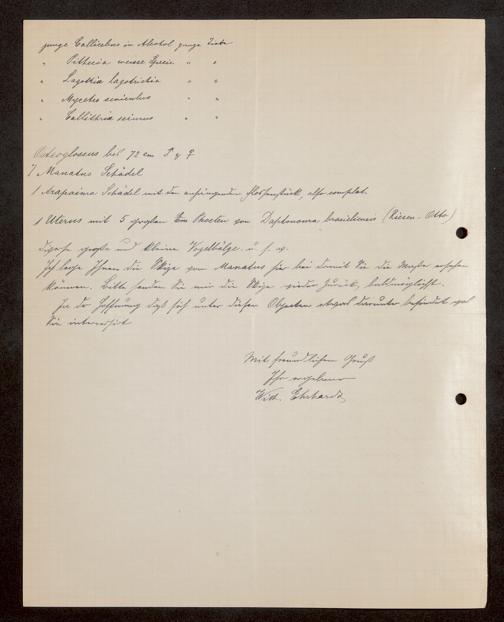 junge Callicebus in Alcohol ganze Tiere
" Pithecia weisse Specie " "
" Lagothrix lagotricha " "
" Mycetes seniculus " "
" Callithrix sciureus " "
Osteoglossus bis 72 cm ♂ & ♀
7 Manatus Schädel
1 Arapaima Schädel mit den anhängenden Flossenstück, also complet.
1 Uterus mit 5 großen Embryonen von brasiliensis (Riesen-Otter)
Diverse große und kleine Vogelbälge u. s. w.
Ich lege Ihnen die Skizze von Manatus hier bei damit Sie die Maße ersehen
können. Bitte senden Sie mir die Skizze wieder zurück, baldmöglichst.
In der Hoffnung daß sich unter diesen Objecten etwas darunter befindet was
Sie interessirt
Mit freundlichem Gruß
Ihr ergebener
Wilh. Ehrhardt